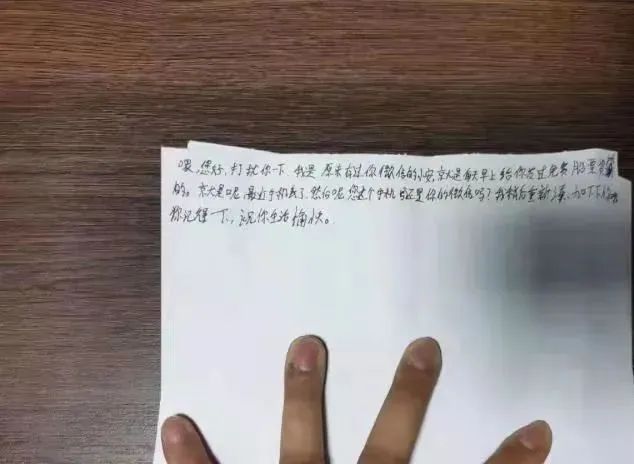 喂,您好,打扰你一下 我是 原来有过你微信的小安,就是每天早上给你发过免费股票
的。就是呢 最近手机丢了,然后呢,您这个手机号还是你的微信吗?我稍后重新添加下
你记得一下,祝你生活愉快。